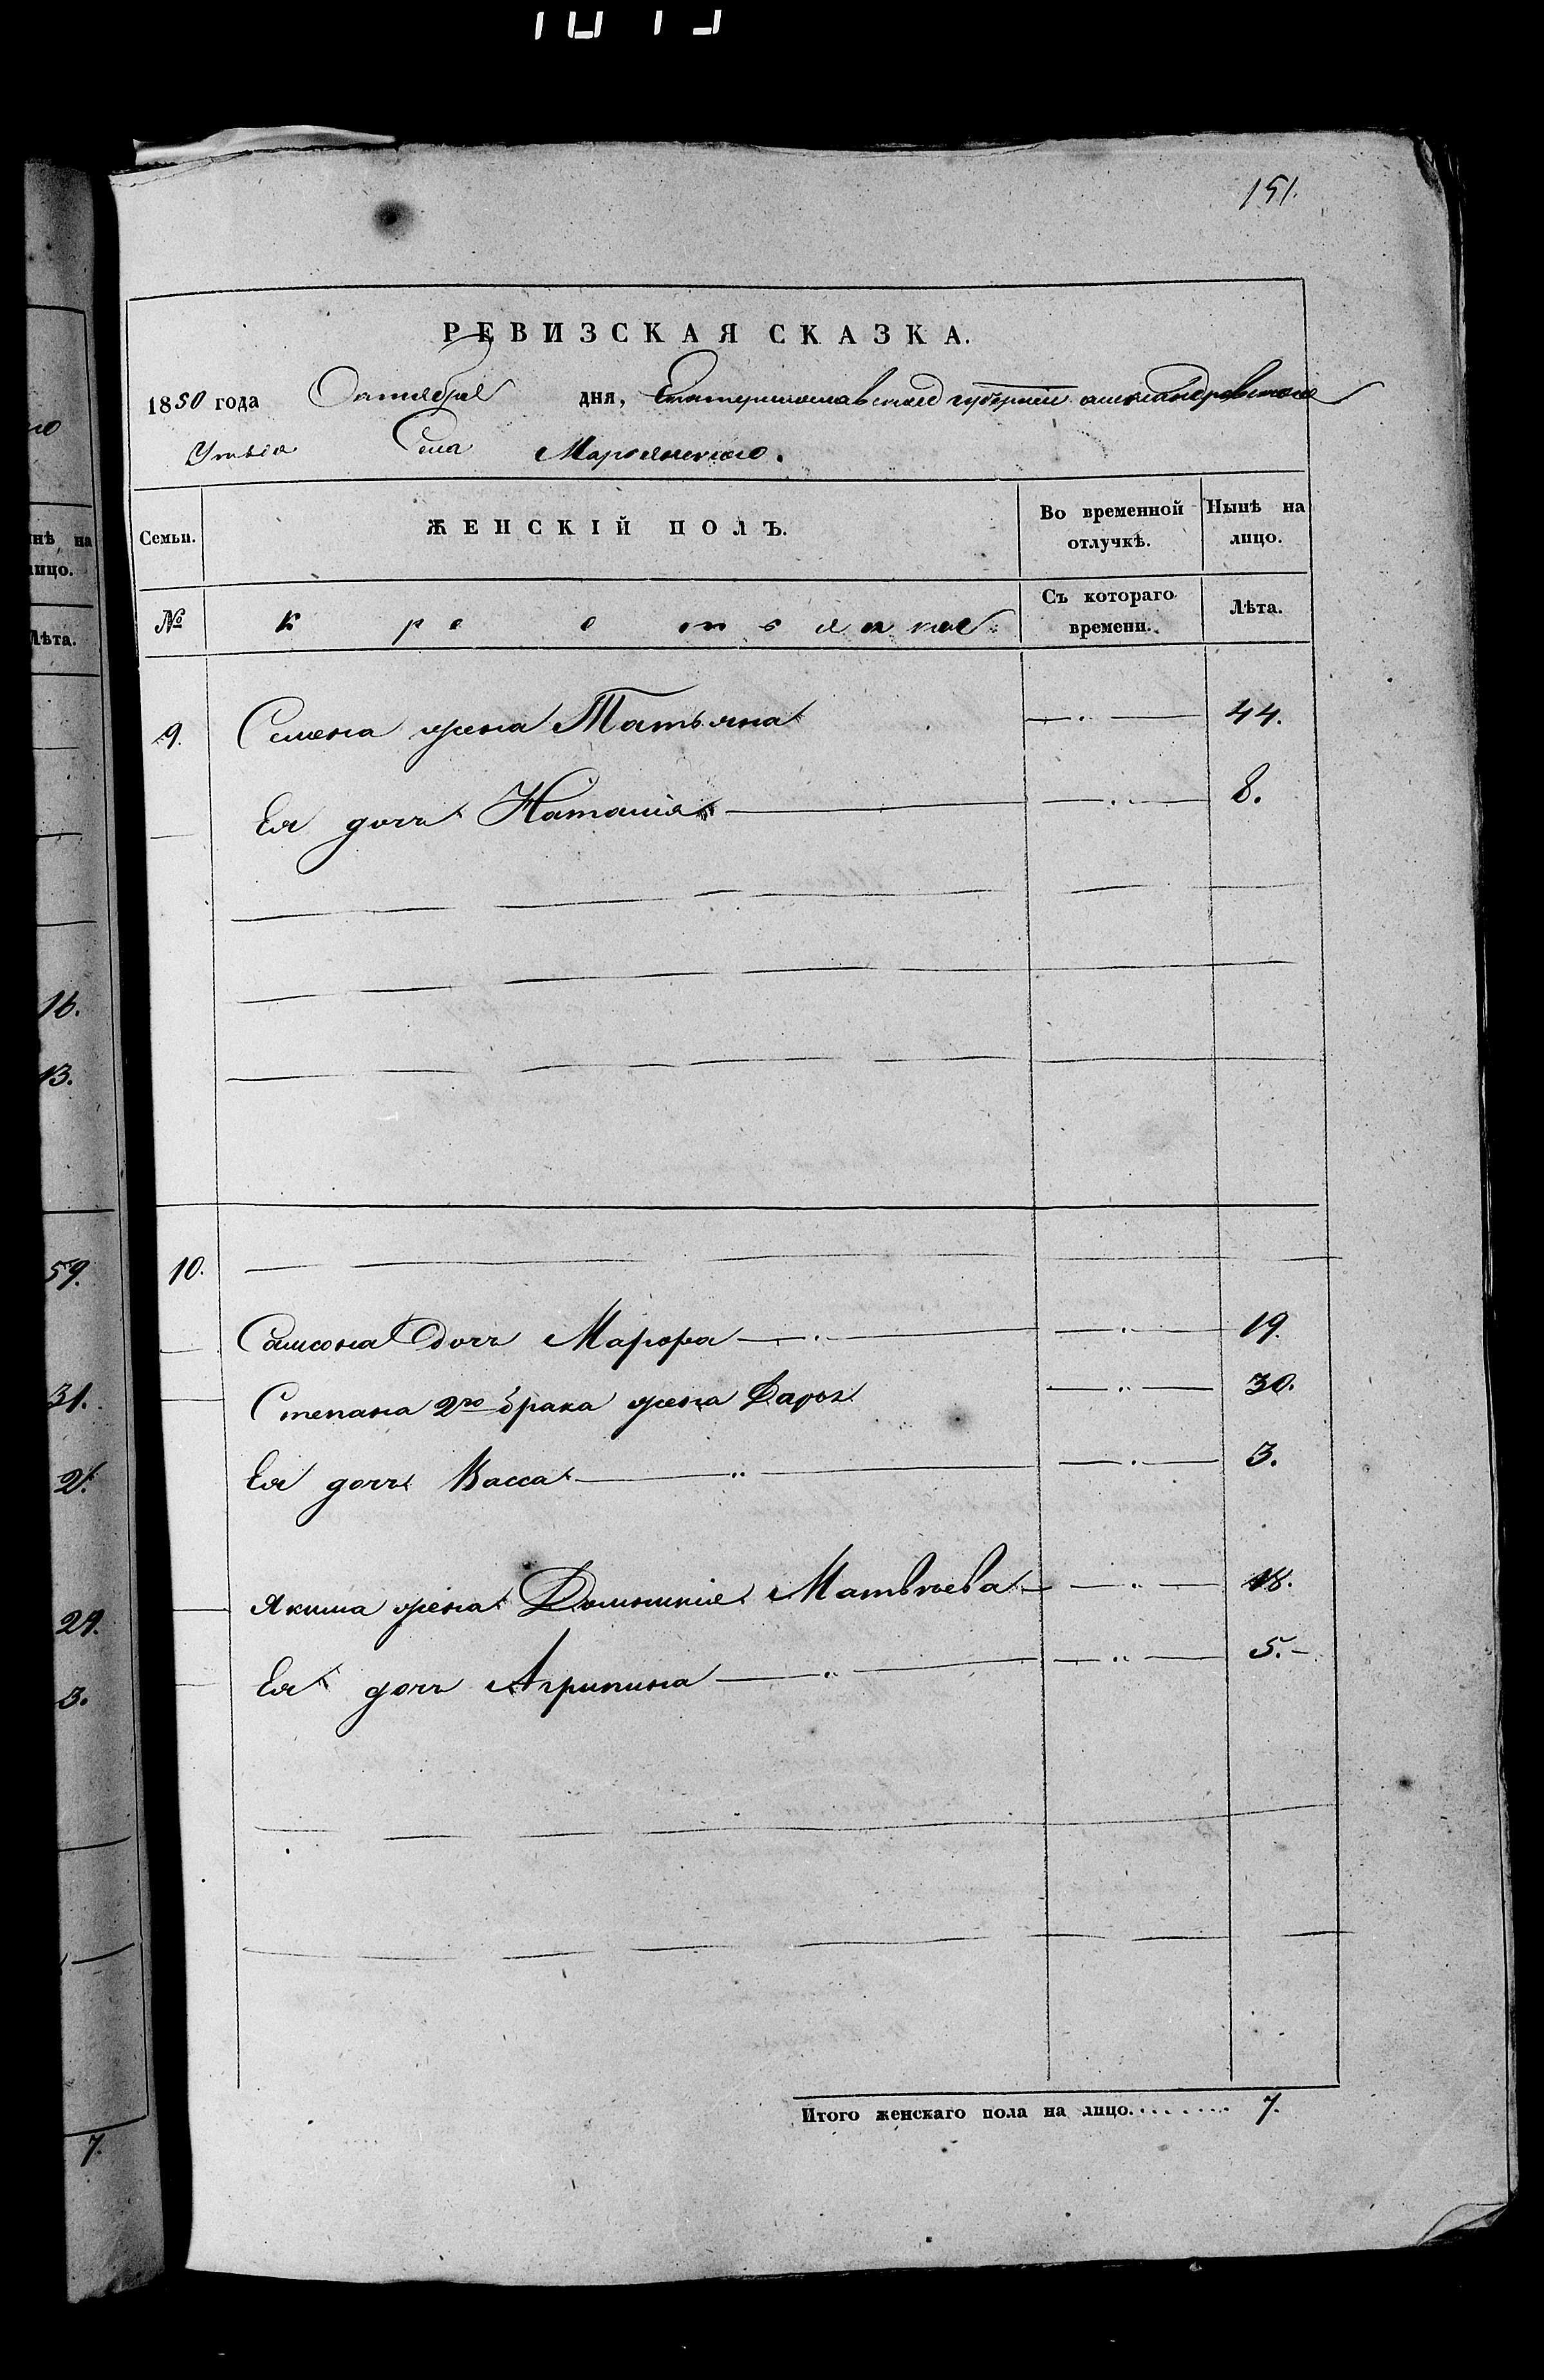 151.
РЕВИЗСКАЯ СКАЗКА.
1850 года Октября дня, Екатеринославской губернии александровского
Уезда Села
ЖЕНСКІЙ ПОЛЪ.
Семьи.
Во временной отлучкѣ.
Ныпѣ на лицо.
№
Крестьяне:
Съ котораго времени.
Лѣта.
9. Семена жена Татьяна 44.
Ея дочь Наталія 8.
10.
Самсона дочь Марфа 19.
Степана 2го брака жена Дарья 30.
Ея дочь Васса 3.
Якима жена Домникия Матвѣева 18.
Ея дочь Агрипина 5.
Итого женскаго пола на лицо........ 7.
нѣ на
ицо.
Лѣта.
16.
13.
59.
31.
2.
29.
3.
7.